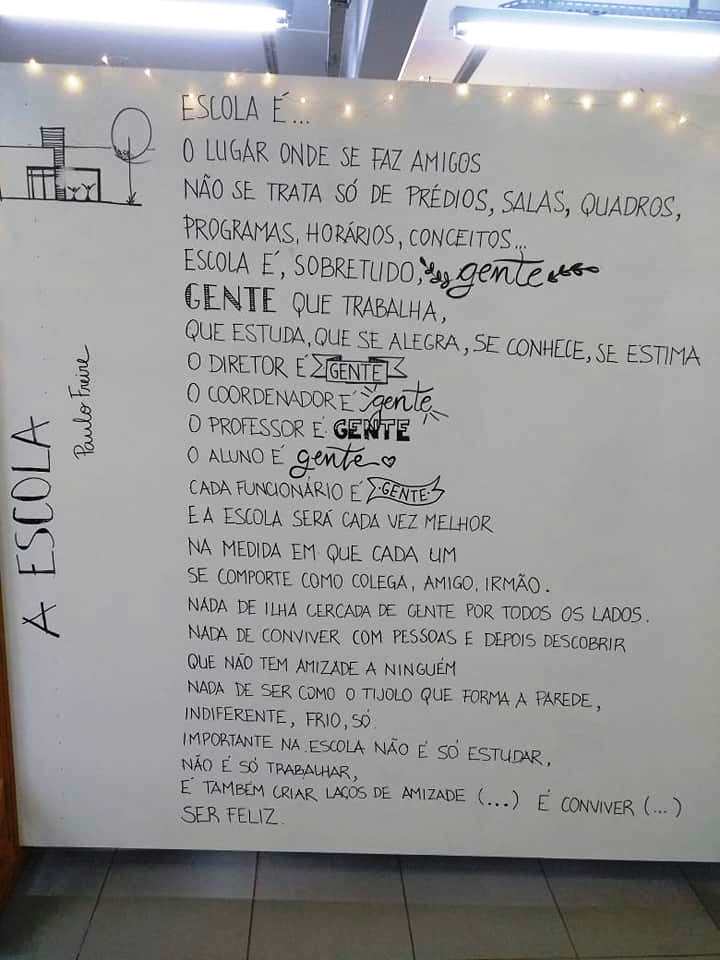 A ESCOLA
Paulo Freire
ESCOLA É...
O LUGAR ONDE SE FAZ AMIGOS
NÃO SE TRATA SÓ DE PRÉDIOS, SALAS, QUADROS,
PROGRAMAS, HORÁRIOS, CONCEITOS...
ESCOLA É, SOBRETUDO, gente
GENTE QUE TRABALHA,
QUE ESTUDA, QUE SE ALEGRA, SE CONHECE, SE ESTIMA
O DIRETOR É GENTE
O COORDENADOR É gente
O PROFESSOR É GENTE
O ALUNO É gente
CADA FUNCIONÁRIO É GENTE
E A ESCOLA SERÁ CADA VEZ MELHOR
NA MEDIDA EM QUE CADA UM
SE COMPORTE COMO COLEGA, AMIGO, IRMÃO.
NADA DE ILHA CERCADA DE GENTE POR TODOS OS LADOS.
NADA DE CONVIVER COM PESSOAS E DEPOIS DESCOBRIR
QUE NÃO TEM AMIZADE A NINGUÉM
NADA DE SER COMO O TIJOLO QUE FORMA A PAREDE,
INDIFERENTE, FRIO, SÓ.
IMPORTANTE NA ESCOLA NÃO É SÓ ESTUDAR,
NÃO É SÓ TRABALHAR,
É TAMBÉM CRIAR LAÇOS DE AMIZADE (...) É CONVIVER (...)
SER FELIZ.